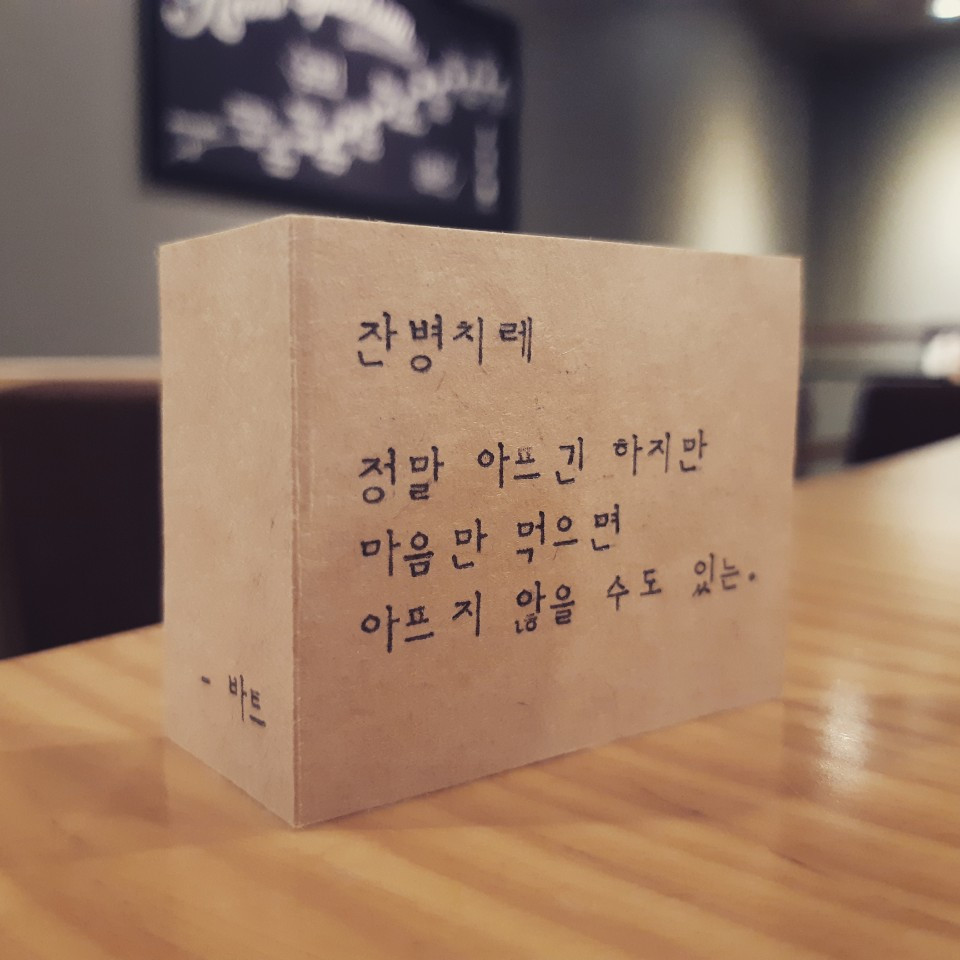 잔병치레
정말 아프긴 하지만
마음만 먹으면
아프지 않을 수도 있는.
- 바트